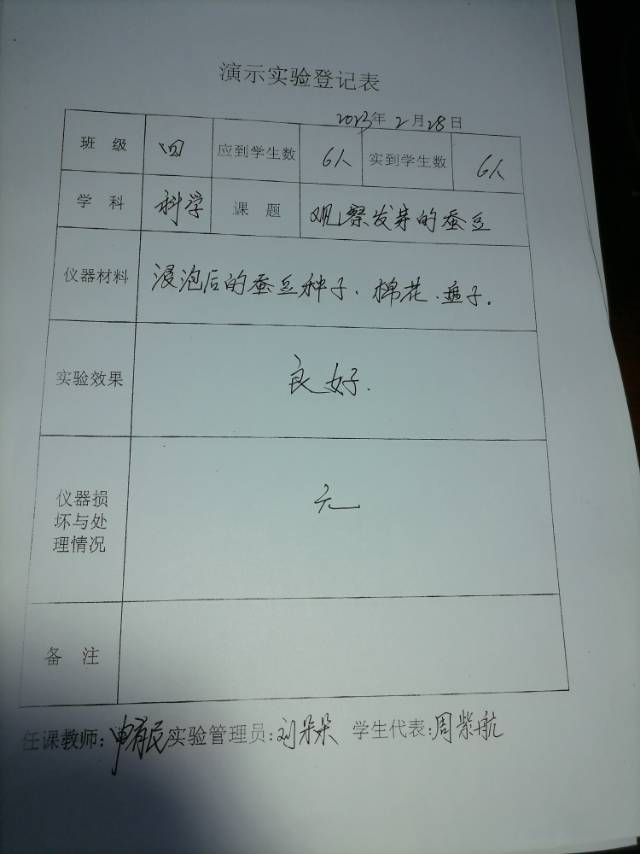 演示实验登记表
2023年2月28日
班级 四 应到学生数 6人 实到学生数 6人
学科 科学 课题 观察发芽的蚕豆
仪器材料 浸泡后的蚕豆种子、棉花、盘子.
实验效果 良好.
仪器损
坏与处
理情况
无
备注
任课教师: 实验管理员:刘朵朵 学生代表:周紫航